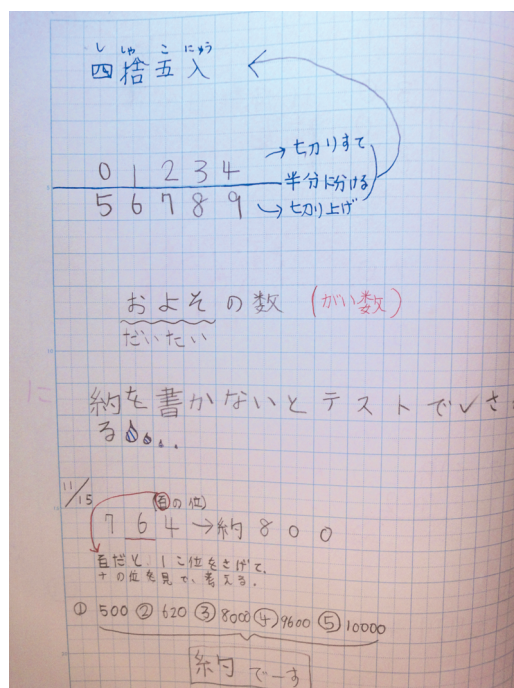 ししゃごにゅう
四捨五入
0 1 2 3 4 →切りすて
半分に分ける
5 6 7 8 9 →切り上げ
およその数 (がい数)
だいたい
約を書かないとテストで✓さ
る
11/15
(百の位)
7 6 4 →約 8 0 0
百だと、1こ位をさげて、
十の位を見て、考える。
① 500 ② 620 ③ 8000 ④ 9600 ⑤ 10000
約 でーす